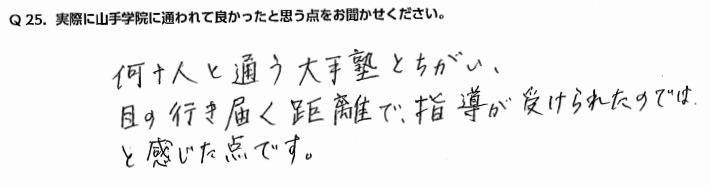 Q 25．実際に山手学院に通われて良かったと思う点をお聞かせください。
何十人と通う大手塾とちがい、
目の行き届く距離で、指導が受けられたのでは
と感じた点です。